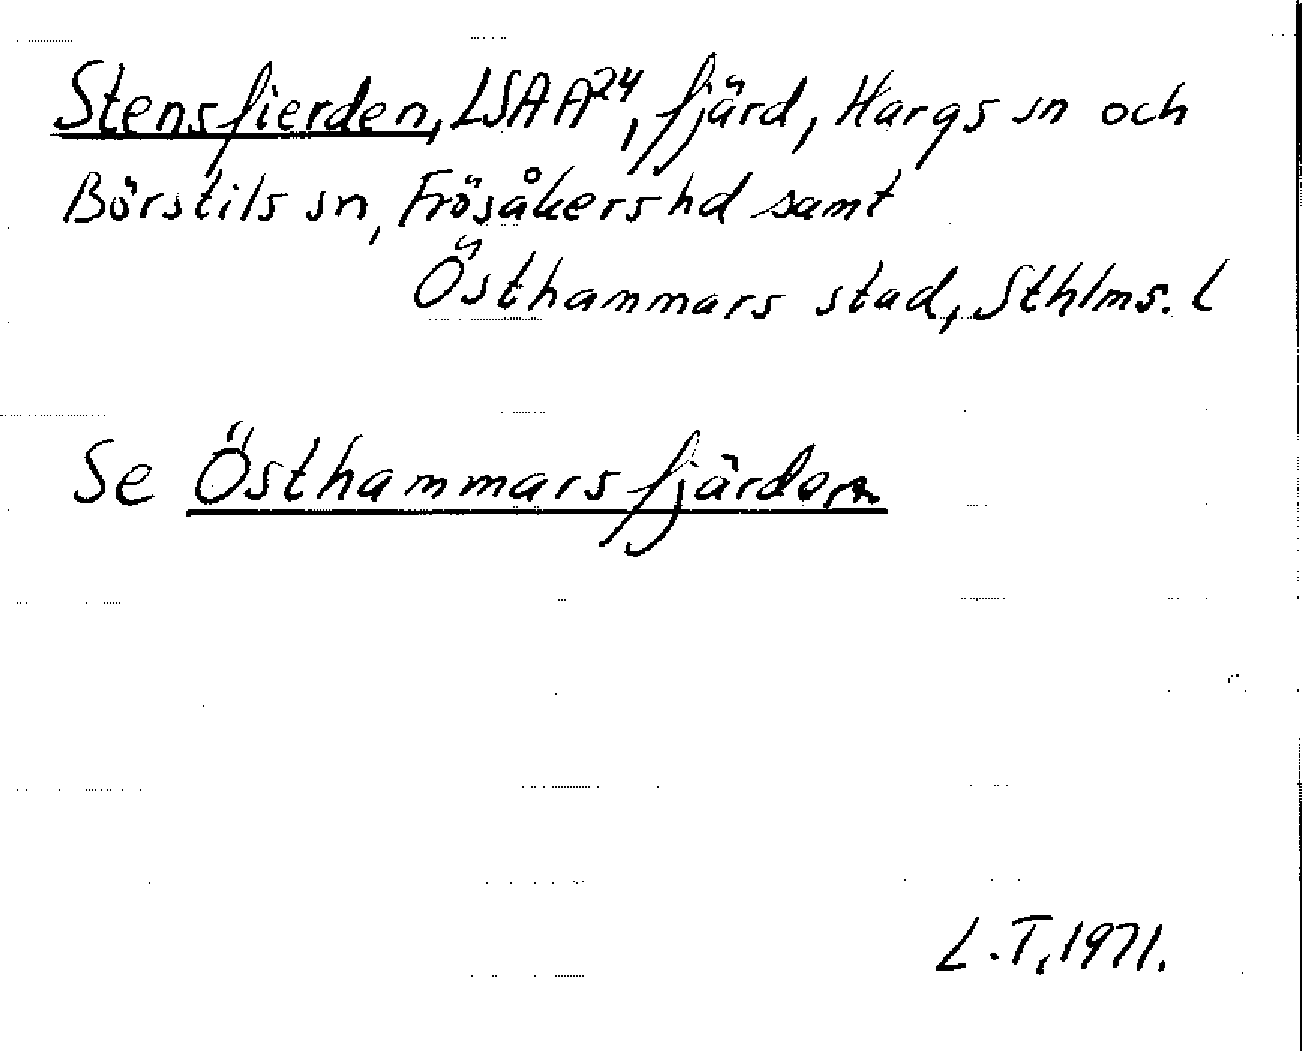 Stensfierden, LSA A24, fjärd, Hargs sn och
Börstils sn, Frösåkers hd samt
Östhammars stad, Sthlms. l
Se Östhammarsfjärden
L.T, 1971.